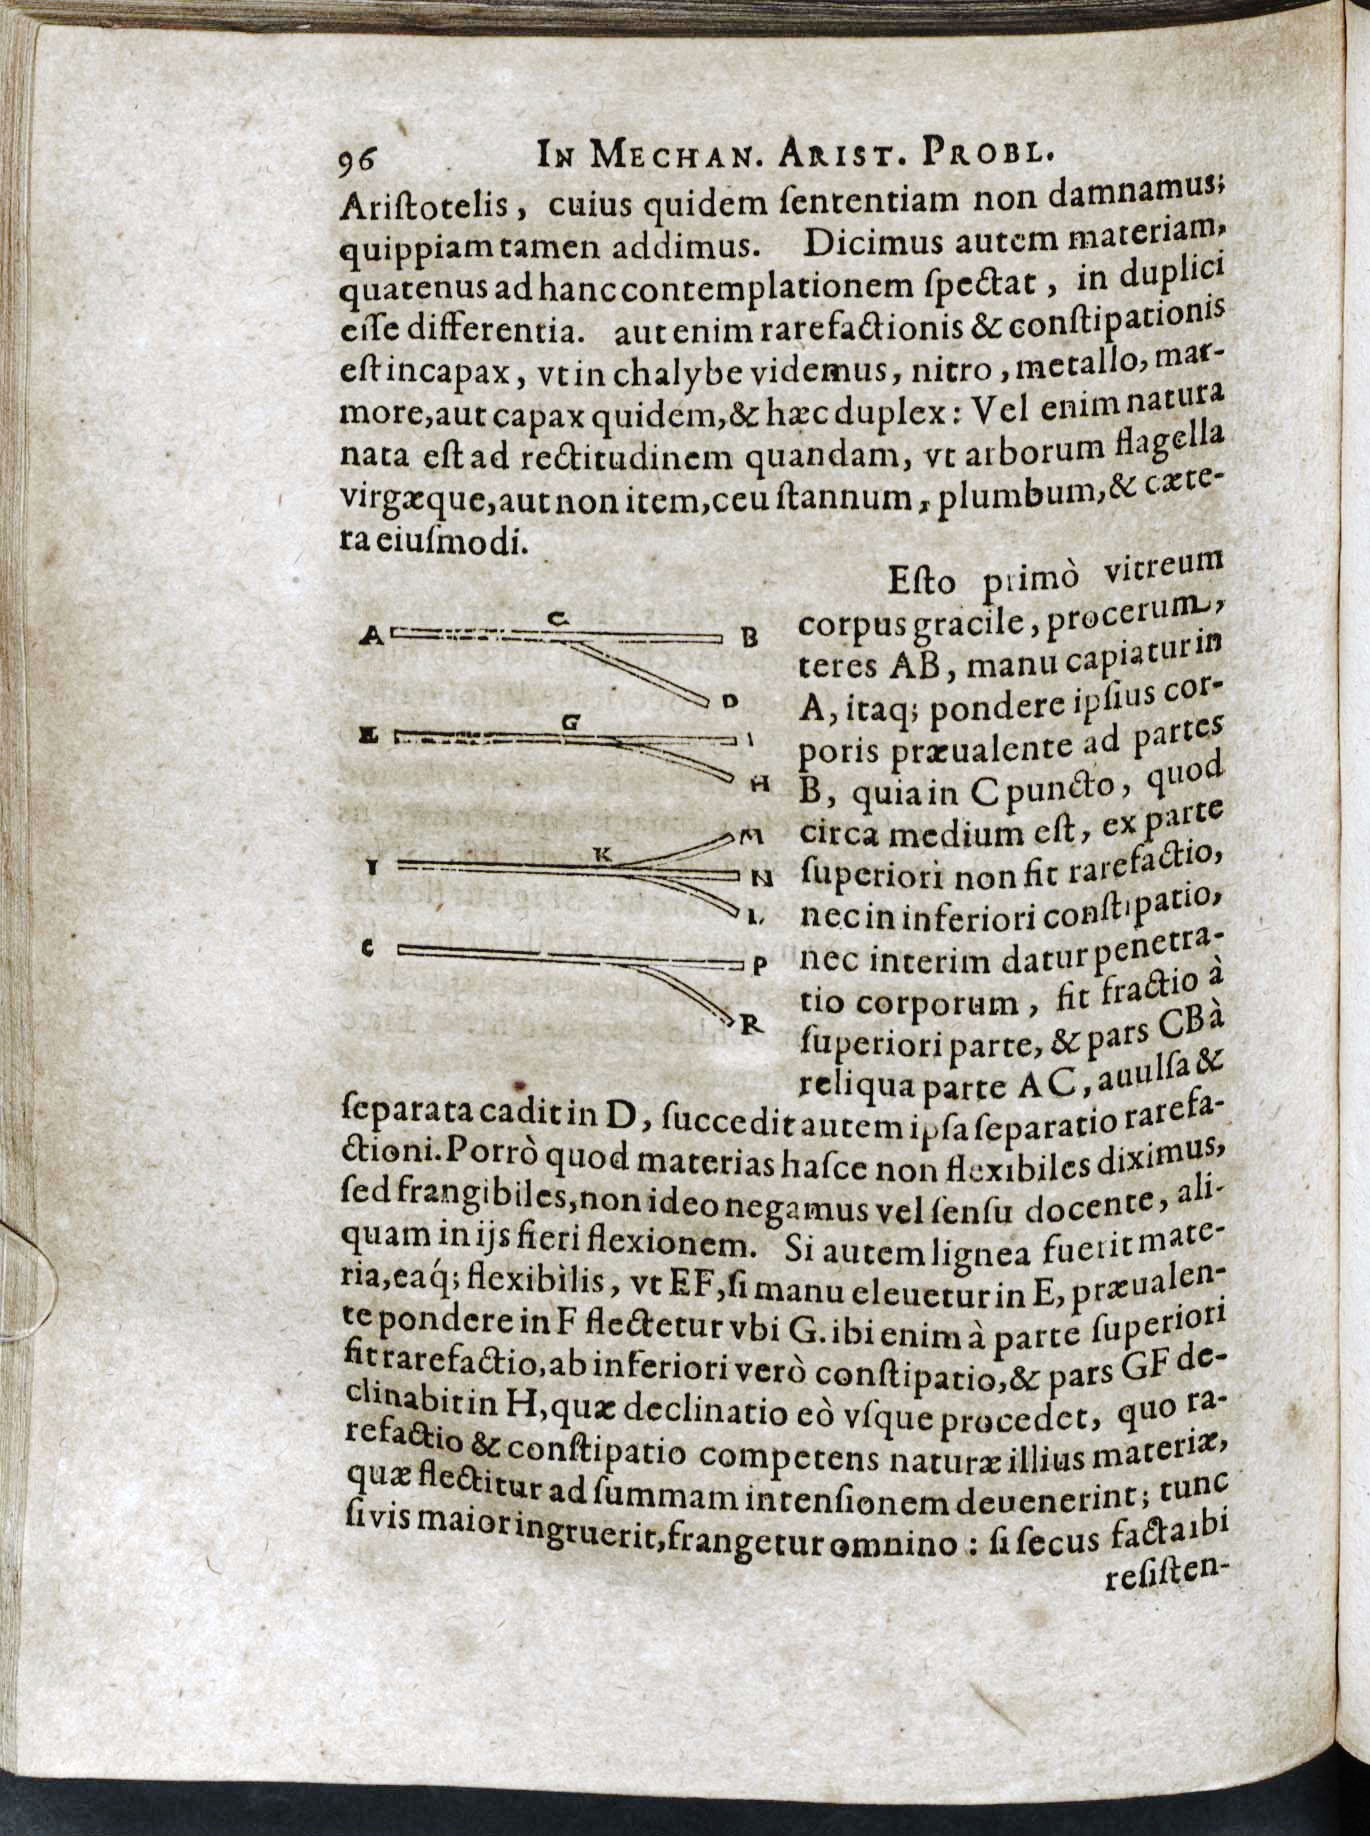 96 IN MECHAN. ARIST. PROBL.
Ariſtotelis, cuius quidem ſententiam non damnamus;
quippiam tamen addimus. Dicimus autem materiam,
quatenus ad hanc contemplationem ſpectat, in duplici
eſſe differentia. aut enim rarefactionis & conſtipationis
eſt incapax, vt in chalybe videmus, nitro, metallo, mar-
more, aut capax quidem, & hæc duplex: Vel enim natura
nata eſt ad rectitudinem quandam, vt arborum flagella
virgæque, aut non item, ceu ſtannum, plumbum, & cæte-
ra eiuſmodi.
Eſto primò vitreum
corpus gracile, procerum,
teres AB, manu capiatur in
A, itaq; pondere ipſius cor-
poris præualente ad partes
B, quia in C puncto, quod
circa medium eſt, ex parte
ſuperiori non fit rarefactio,
nec in inferiori conſtipatio,
nec interim datur penetra-
tio corporum, fit fractio à
ſuperiori parte, & pars CB à
reliqua parte AC, auulſa &
A C B
D
E G I
H
I K M
N
L
C P
R
ſeparata cadit in D, ſuccedit autem ipſa ſeparatio rarefa-
ctioni. Porrò quod materias haſce non flexibiles diximus,
ſed frangibiles, non ideo negamus vel ſenſu docente, ali-
quam in ijs fieri flexionem. Si autem lignea fuerit mate-
ria, eaq́; flexibilis, vt EF, ſi manu eleuetur in E, præualen-
te pondere in F flectetur vbi G. ibi enim à parte ſuperiori
fit rarefactio, ab inferiori verò conſtipatio, & pars GF de-
clinabit in H, quæ declinatio eò vſque procedet, quo ra-
refactio & conſtipatio competens naturæ illius materiæ,
quæ flectitur ad ſummam intenſionem deuenerint; tunc
ſi vis maior ingruerit, frangetur omnino: ſi ſecus facta ibi
reſiſten-